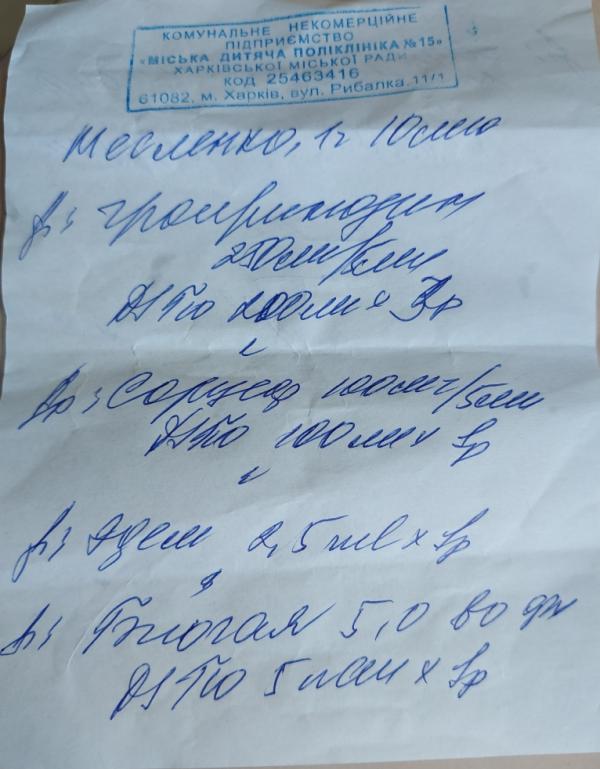 КОМУНАЛЬНЕ НЕКОМЕРЦІЙНЕ
ПІДПРИЄМСТВО
«МІСЬКА ДИТЯЧА ПОЛІКЛІНІКА №15»
ХАРКІВСЬКОЇ МІСЬКОЇ РАДИ
КОД 25463416
61082, м. Харків, вул. Рибалка, 11/1
Масленко, 1г 10мес
Rp:
250мг/5мл
DS По 200мг х 3р
Rp: Сорцеф 100мг/5мл
DS По 100мг х 1р
Rp: Эдем 2,5 ml х 1р
Rp: Биогая 5,0 во фл
DS По 5 кап х 1р